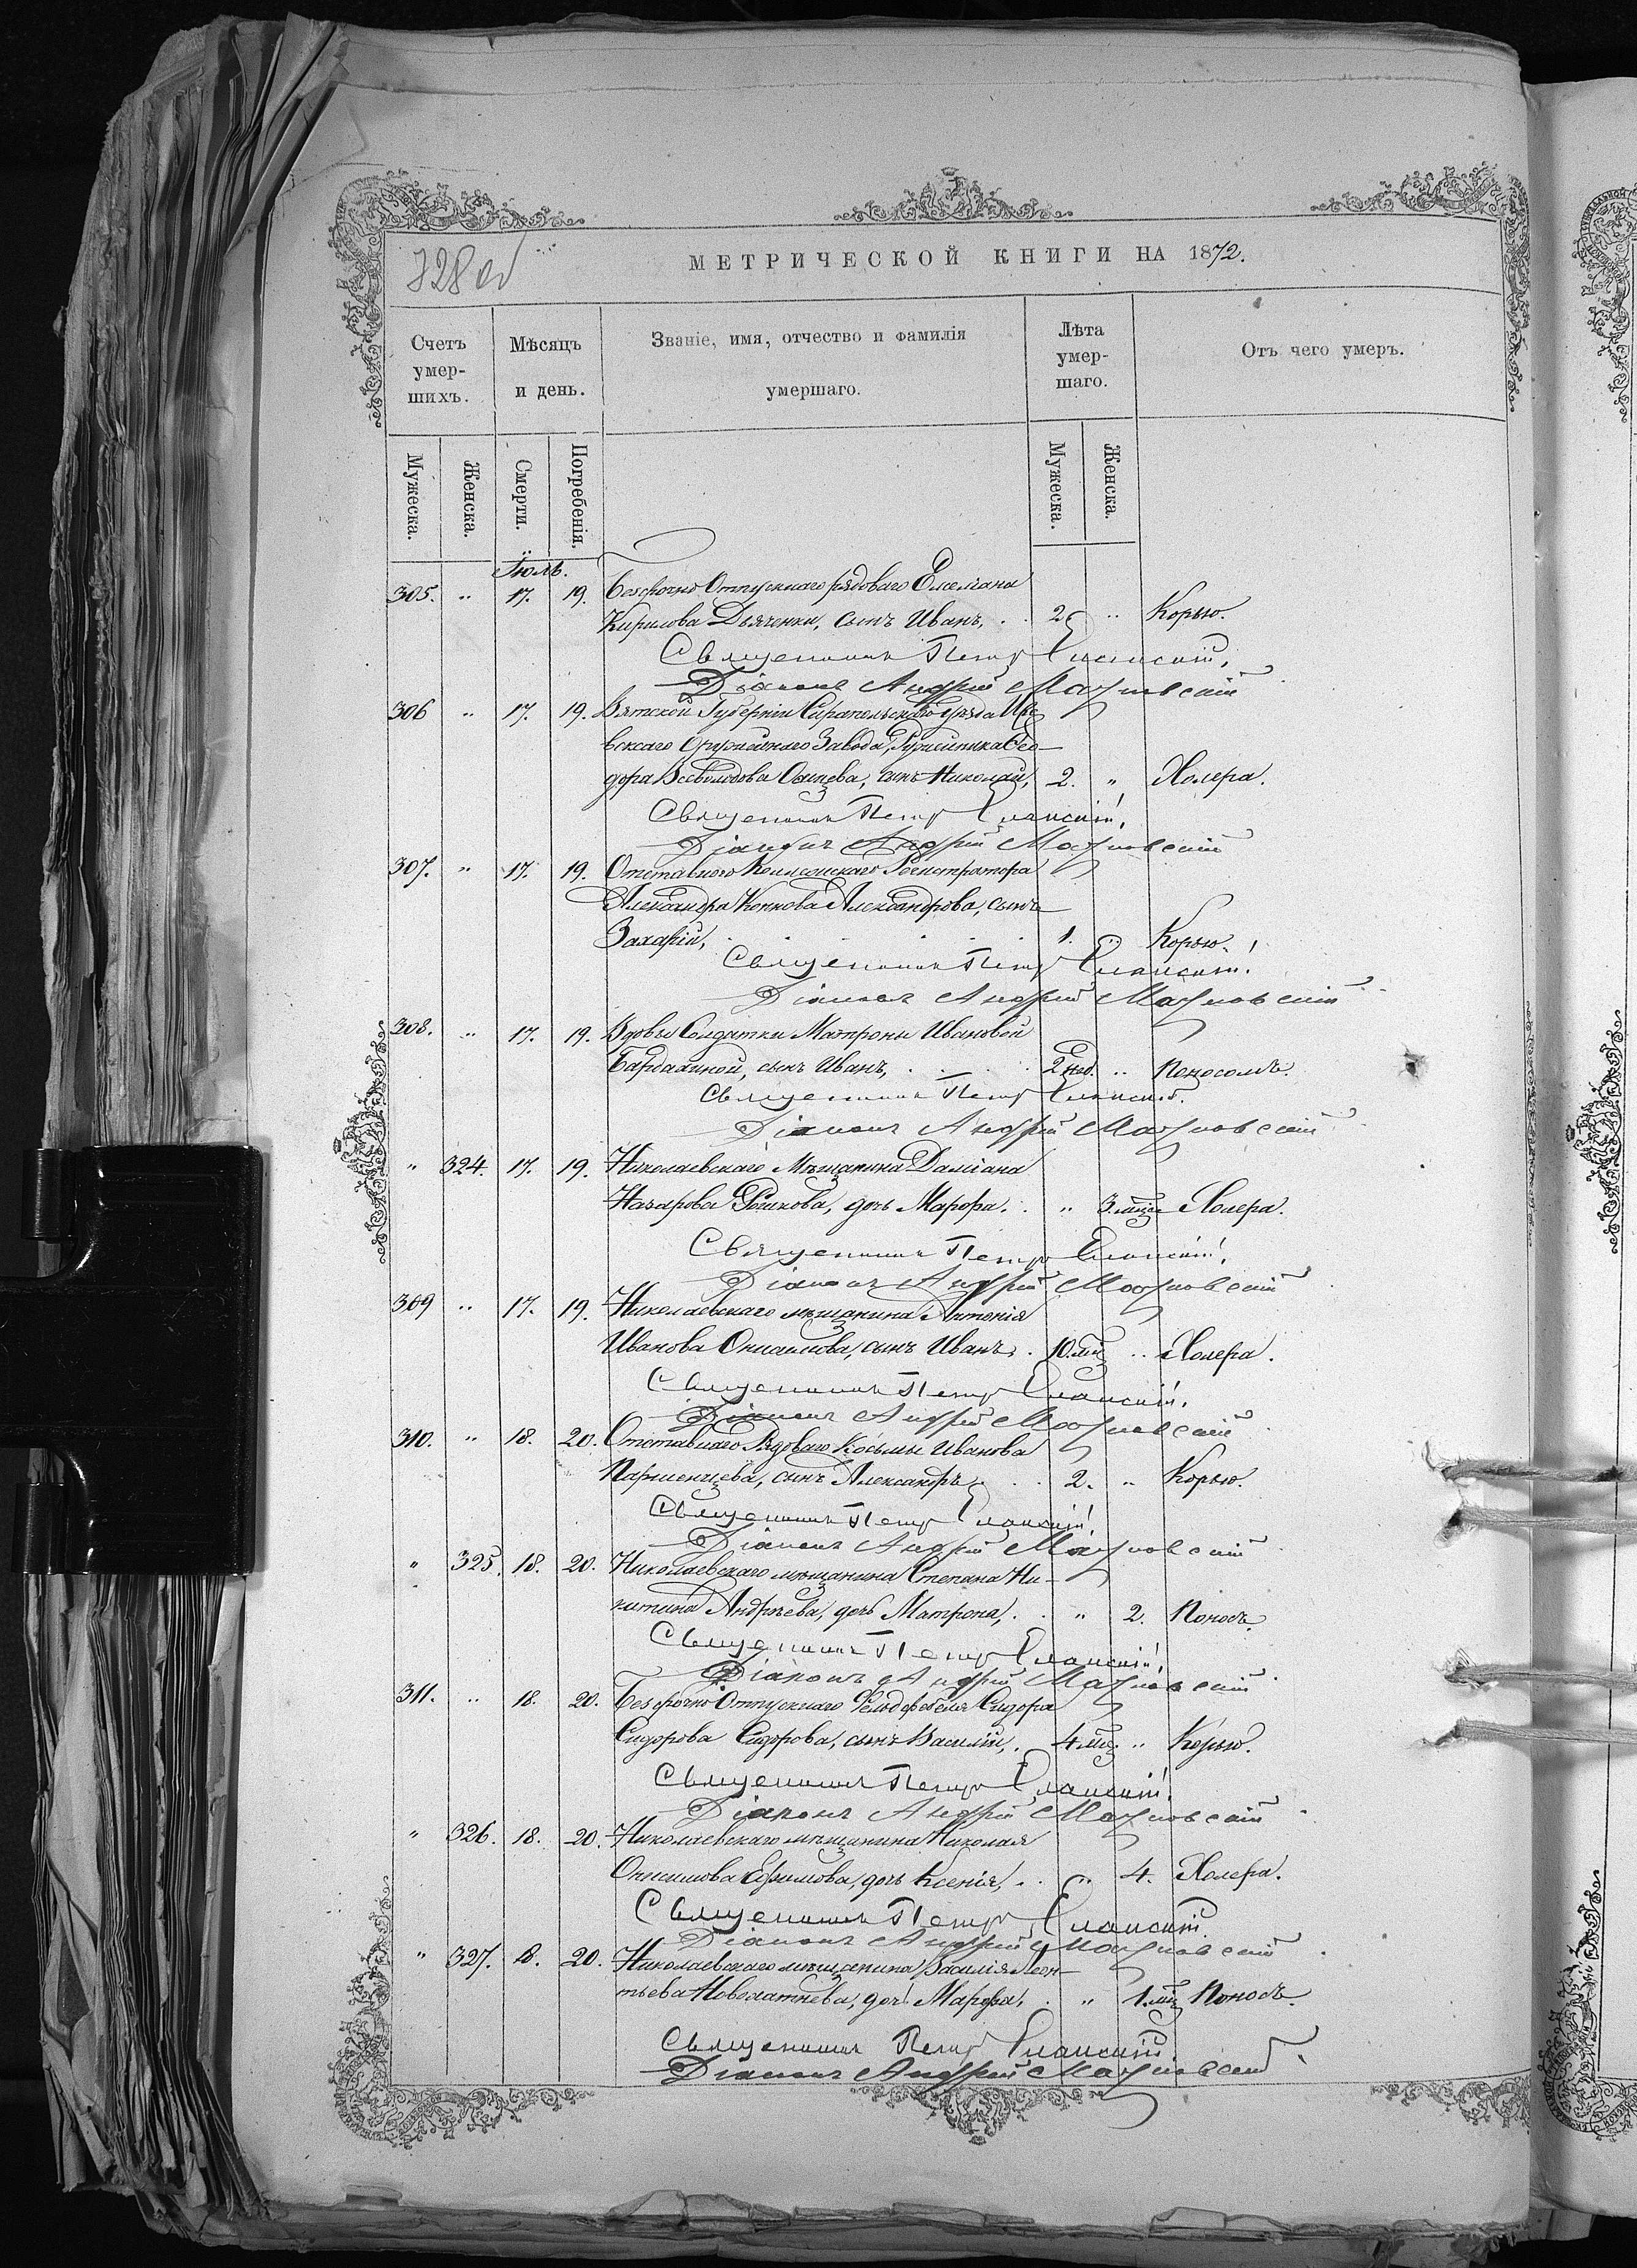 728 об
МЕТРИЧЕСКОЙ КНИГИ НА 1872.
Счетъ умер-шихъ.
Мѣсяцъ и день.
Званіе, имя, отчество и фамилія умершаго.
Лѣта умер-шаго.
Отъ чего умеръ.
Мужеска. Женска. Смерти. Погребенія. Мужеска. Женска.
Іюль.
305. " 17. 19. Безсрочно Отпускнаго рядоваго Емеліана
Кирилова Дьяченки, сынъ Иванъ, . . 2 " Корью.
Священникъ Петръ
Діаконъ Андрей
306 " 17. 19. Вятской Губерніи Сарапольскаго Уѣзда Иже
вскаго Оружейнаго Завода, Оружейника Ѳео-
дора Всеволодова сынъ Николай, 2. " Холера.
Священникъ Петръ
Діаконъ Андрей
307. " 17. 19. Отставнаго Коллежскаго Регистратора
Александра Александрова, сынъ
Захарій, . . . . 1. " Корью.
Священникъ Петръ
Діаконъ Андрей
308. " 17. 19. Вдовы Солдатки Матроны Ивановой
сынъ Иванъ, . . . . 2 нед. " Поносомъ.
Священникъ Петръ
Діаконъ Андрей
" 324. 17. 19. Николаевскаго Мѣщанина Даміана
Назарова дочь Марфа. . " 3. мѣс Холера.
Священникъ Петръ
Діаконъ Андрей
309 " 17. 19. Николаевскаго мѣщанина Антонія
Иванова Онисимова, сынъ Иванъ, . 10. мѣс " Холера.
Священникъ Петръ
Діаконъ Андрей
310. " 18. 20. Отставнаго Рядоваго Косьмы Иванова
Парменцева, сынъ Александръ . . 2. " Корью.
Священникъ Петръ
Діаконъ Андрей
" 325. 18. 20. Николаевскаго мѣщанина Степана Ни-
китина Андрѣева, дочь Матрона, . . " 2. Поносъ.
Священникъ Петръ
Діаконъ Андрей
311. " 18. 20. Безсрочно Отпускнаго Фельдфебеля Сидора
Сидорова Сидорова, сынъ Василій, . 4 мѣс " Корью.
Священникъ Петръ
Діаконъ Андрей
" 326. 18. 20. Николаевскаго мѣщанина Николая
Онисимова Ефимова, дочь Ксенія, . . " 4. Холера.
Священникъ Петръ
Діаконъ Андрей
" 327. 18. 20. Николаевскаго мѣщанина Василія Леон-
тьева дочь Марфа, . " 1. мѣс Поносъ.
Священникъ Петръ
Діаконъ Андрей